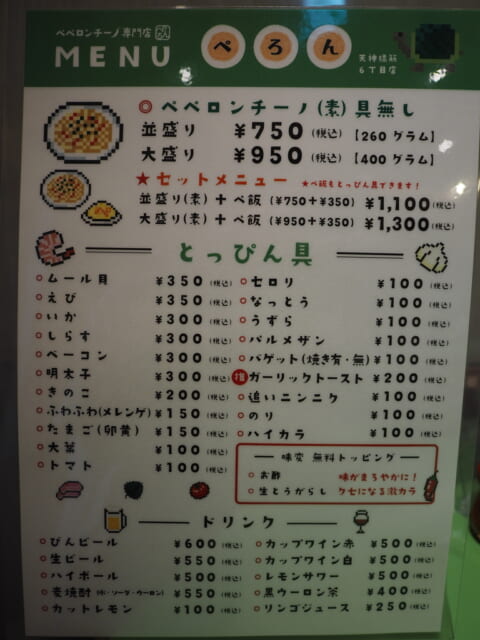 ペペロンチーノ専門店
MENU
ぺろん
天神橋筋
6丁目店
◎ペペロンチーノ(素)具無し
並盛り ¥750(税込)【260グラム】
大盛り ¥950(税込)【400グラム】
★セットメニュー ★ペ飯もとっぴん具できます!
並盛り(素)+ペ飯(¥750+¥350) ¥1,100(税込)
大盛り(素)+ペ飯(¥950+¥350) ¥1,300(税込)
とっぴん具
ムール貝 ¥350(税込)
えび ¥350(税込)
いか ¥300(税込)
しらす ¥300(税込)
ベーコン ¥300(税込)
明太子 ¥300(税込)
きのこ ¥200(税込)
ふわふわ(メレンゲ) ¥150(税込)
たまご(卵黄) ¥150(税込)
大葉 ¥100(税込)
トマト ¥100(税込)
セロリ ¥100(税込)
なっとう ¥100(税込)
うずら ¥100(税込)
パルメザン ¥100(税込)
バゲット(焼き有・無) ¥100(税込)
推 ガーリックトースト ¥200(税込)
追いニンニク ¥100(税込)
のり ¥100(税込)
ハイカラ ¥100(税込)
味変 無料トッピング
お酢 味がまろやかに!
生とうがらし クセになる激カラ
ドリンク
びんビール ¥600(税込)
生ビール ¥550(税込)
ハイボール ¥500(税込)
麦焼酎(水・ソーダ・ウーロン) ¥550(税込)
カットレモン ¥100(税込)
カップワイン赤 ¥500(税込)
カップワイン白 ¥500(税込)
レモンサワー ¥500(税込)
黒ウーロン茶 ¥400(税込)
リンゴジュース ¥250(税込)